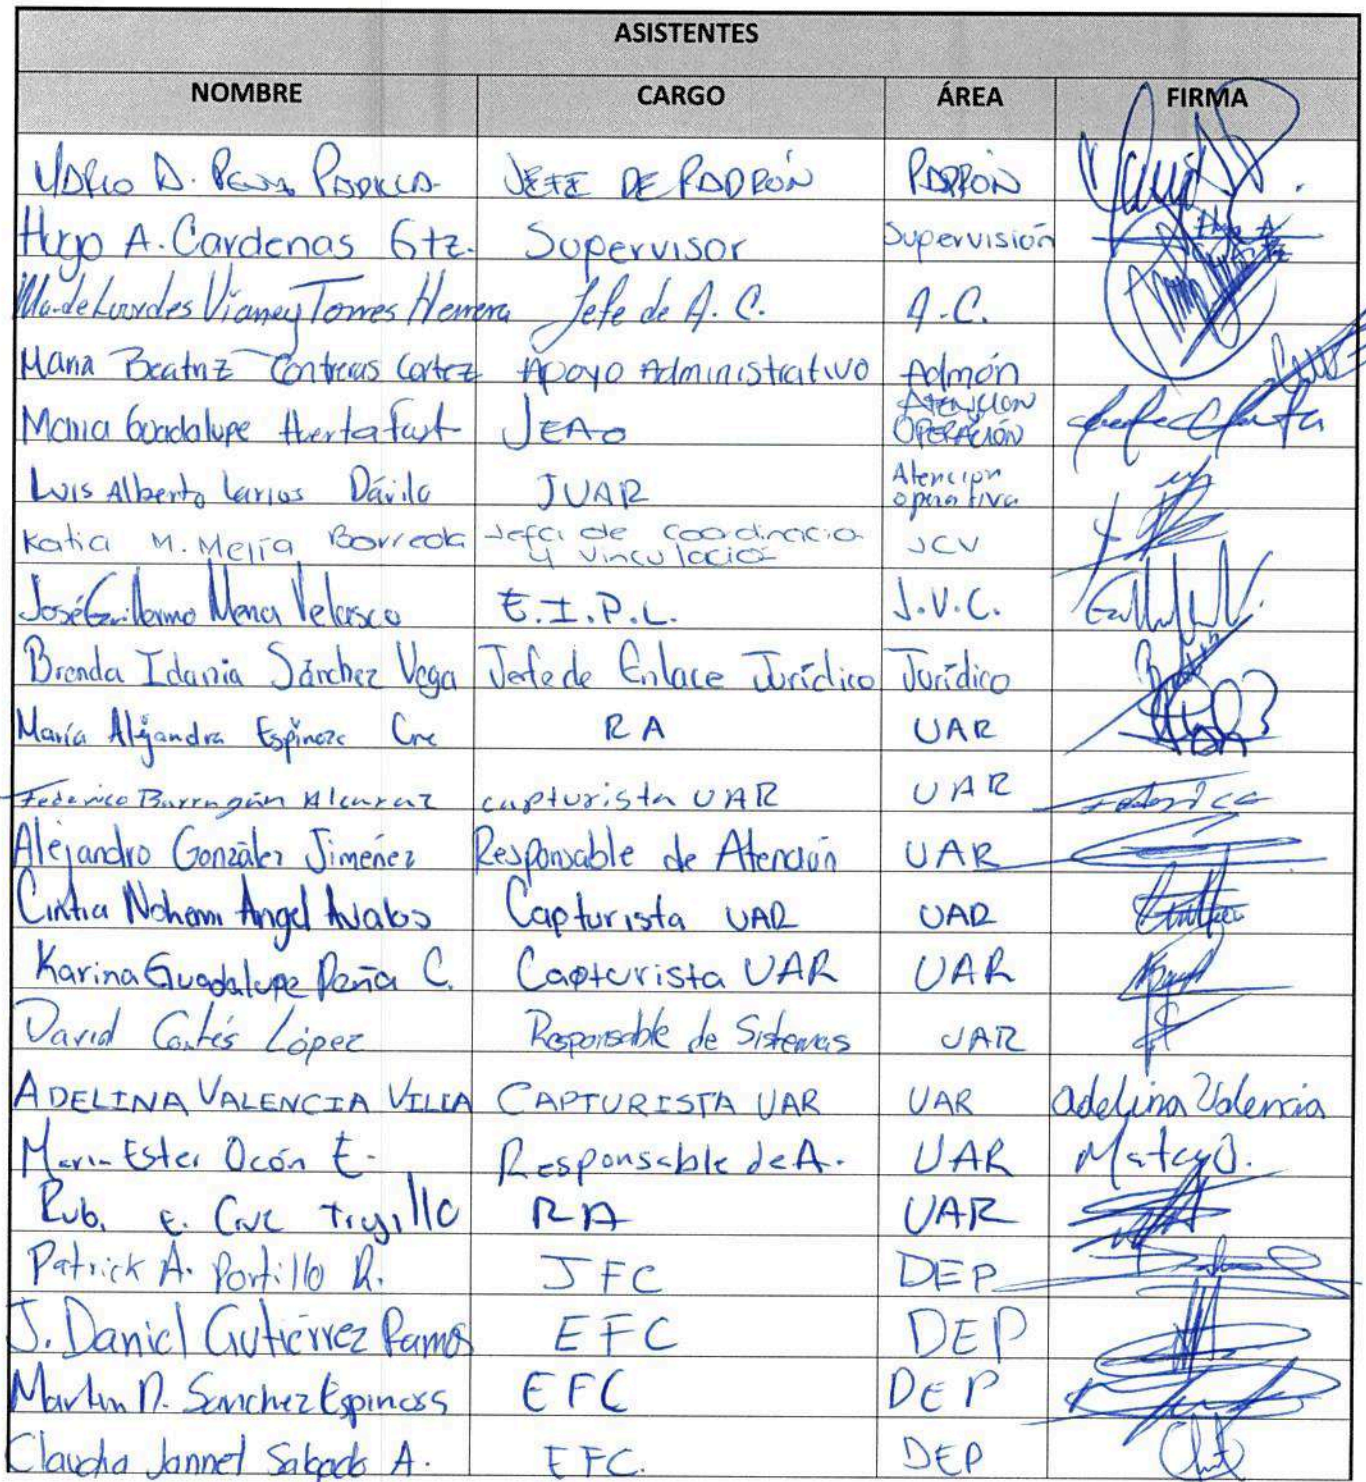 ASISTENTES
NOMBRE CARGO ÁREA FIRMA
D. JEFE DE PADRÓN PADRÓN
Hugo A. Cardenas Gtz. Supervisor Supervisión
Ma. de Lourdes Vianey Torres Herrera Jefe de A. C. A.C.
Maria Beatriz Contreras Cortez Apoyo Administrativo Admón
Maria Guadalupe Huerta JEAO ATENCION OPERACIÓN
Luis Alberto Larios Dávila JUAR Atencion operativa
Katia M. Mejía Borreda Jefa de Coordinacio y vinculacio JCV
José Guillermo Mena Velasco E.I.P.L. J.V.C.
Brenda Idania Sánchez Vega Jefe de Enlace Jurídico Jurídico
María Alejandra Espinoza RA UAR
Federico Barragán Alcaraz capturista UAR UAR Federico
Alejandro González Jiménez Responsable de Atención UAR
Cintia Nohemi Angel Avalos Capturista UAR UAR
Karina Guadalupe Peña C. Capturista UAR UAR
David Cortés López Responsable de Sistemas UAR
ADELINA VALENCIA VILLA CAPTURISTA UAR UAR adelina Valencia
Maria Ester Ocón E. Responsable de A. UAR
E. Cruz Trujillo RA UAR
Patrick A. Portillo R. JFC DEP
J. Daniel Gutiérrez Ramos EFC DEP
Martin D. Sanchez Espinoss EFC DEP
Claudia Jannet Salgado A. EFC. DEP